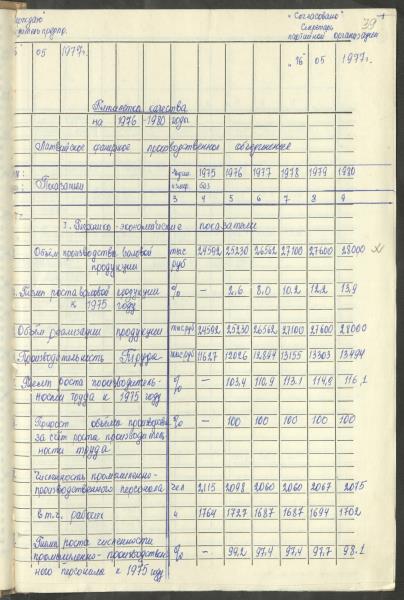 "Согласовано" 39
Секретарь
партийной организации
05 1977г. "16" 05 1977г.
Пятилетка качества
на 1976-1980 годы
Латвийское фанерное производственное объединение
Показатели Един. измер. 1975 баз. 1976 1977 1978 1979 1980
3 4 5 6 7 8 9
I. Технико-экономические показатели
Объём производства валовой тыс 24592 25230 26562 27100 27600 28000
продукции руб
Темп роста валовой продукции % — 2,6 8.0 10.2 12.2 13,9
к 1975 году
Объём реализации продукции тыс.руб 24592 25230 26562 27100 27600 28000
Производительность труда тыс.руб 11627 12026 12894 13155 13303 13494
Темп роста производитель- % — 103,4 110,9 113.1 114,8 116,1
ности труда к 1975 году
Прирост объёма производства % — 100 100 100 100 100
за счёт роста производитель-
ности труда
Численность промышленно-
производственного персонала чел 2115 2098 2060 2060 2067 2075
в т.ч. рабочих " 1764 1727 1687 1687 1694 1702
Темп роста численности
промышленно-производствен- % — 99,2 97,4 97,4 97,7 98.1
ного персонала к 1975 году